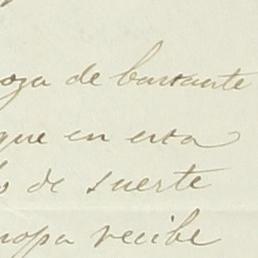 oza de bastante
que en esta
o de suerte
ropa recibe